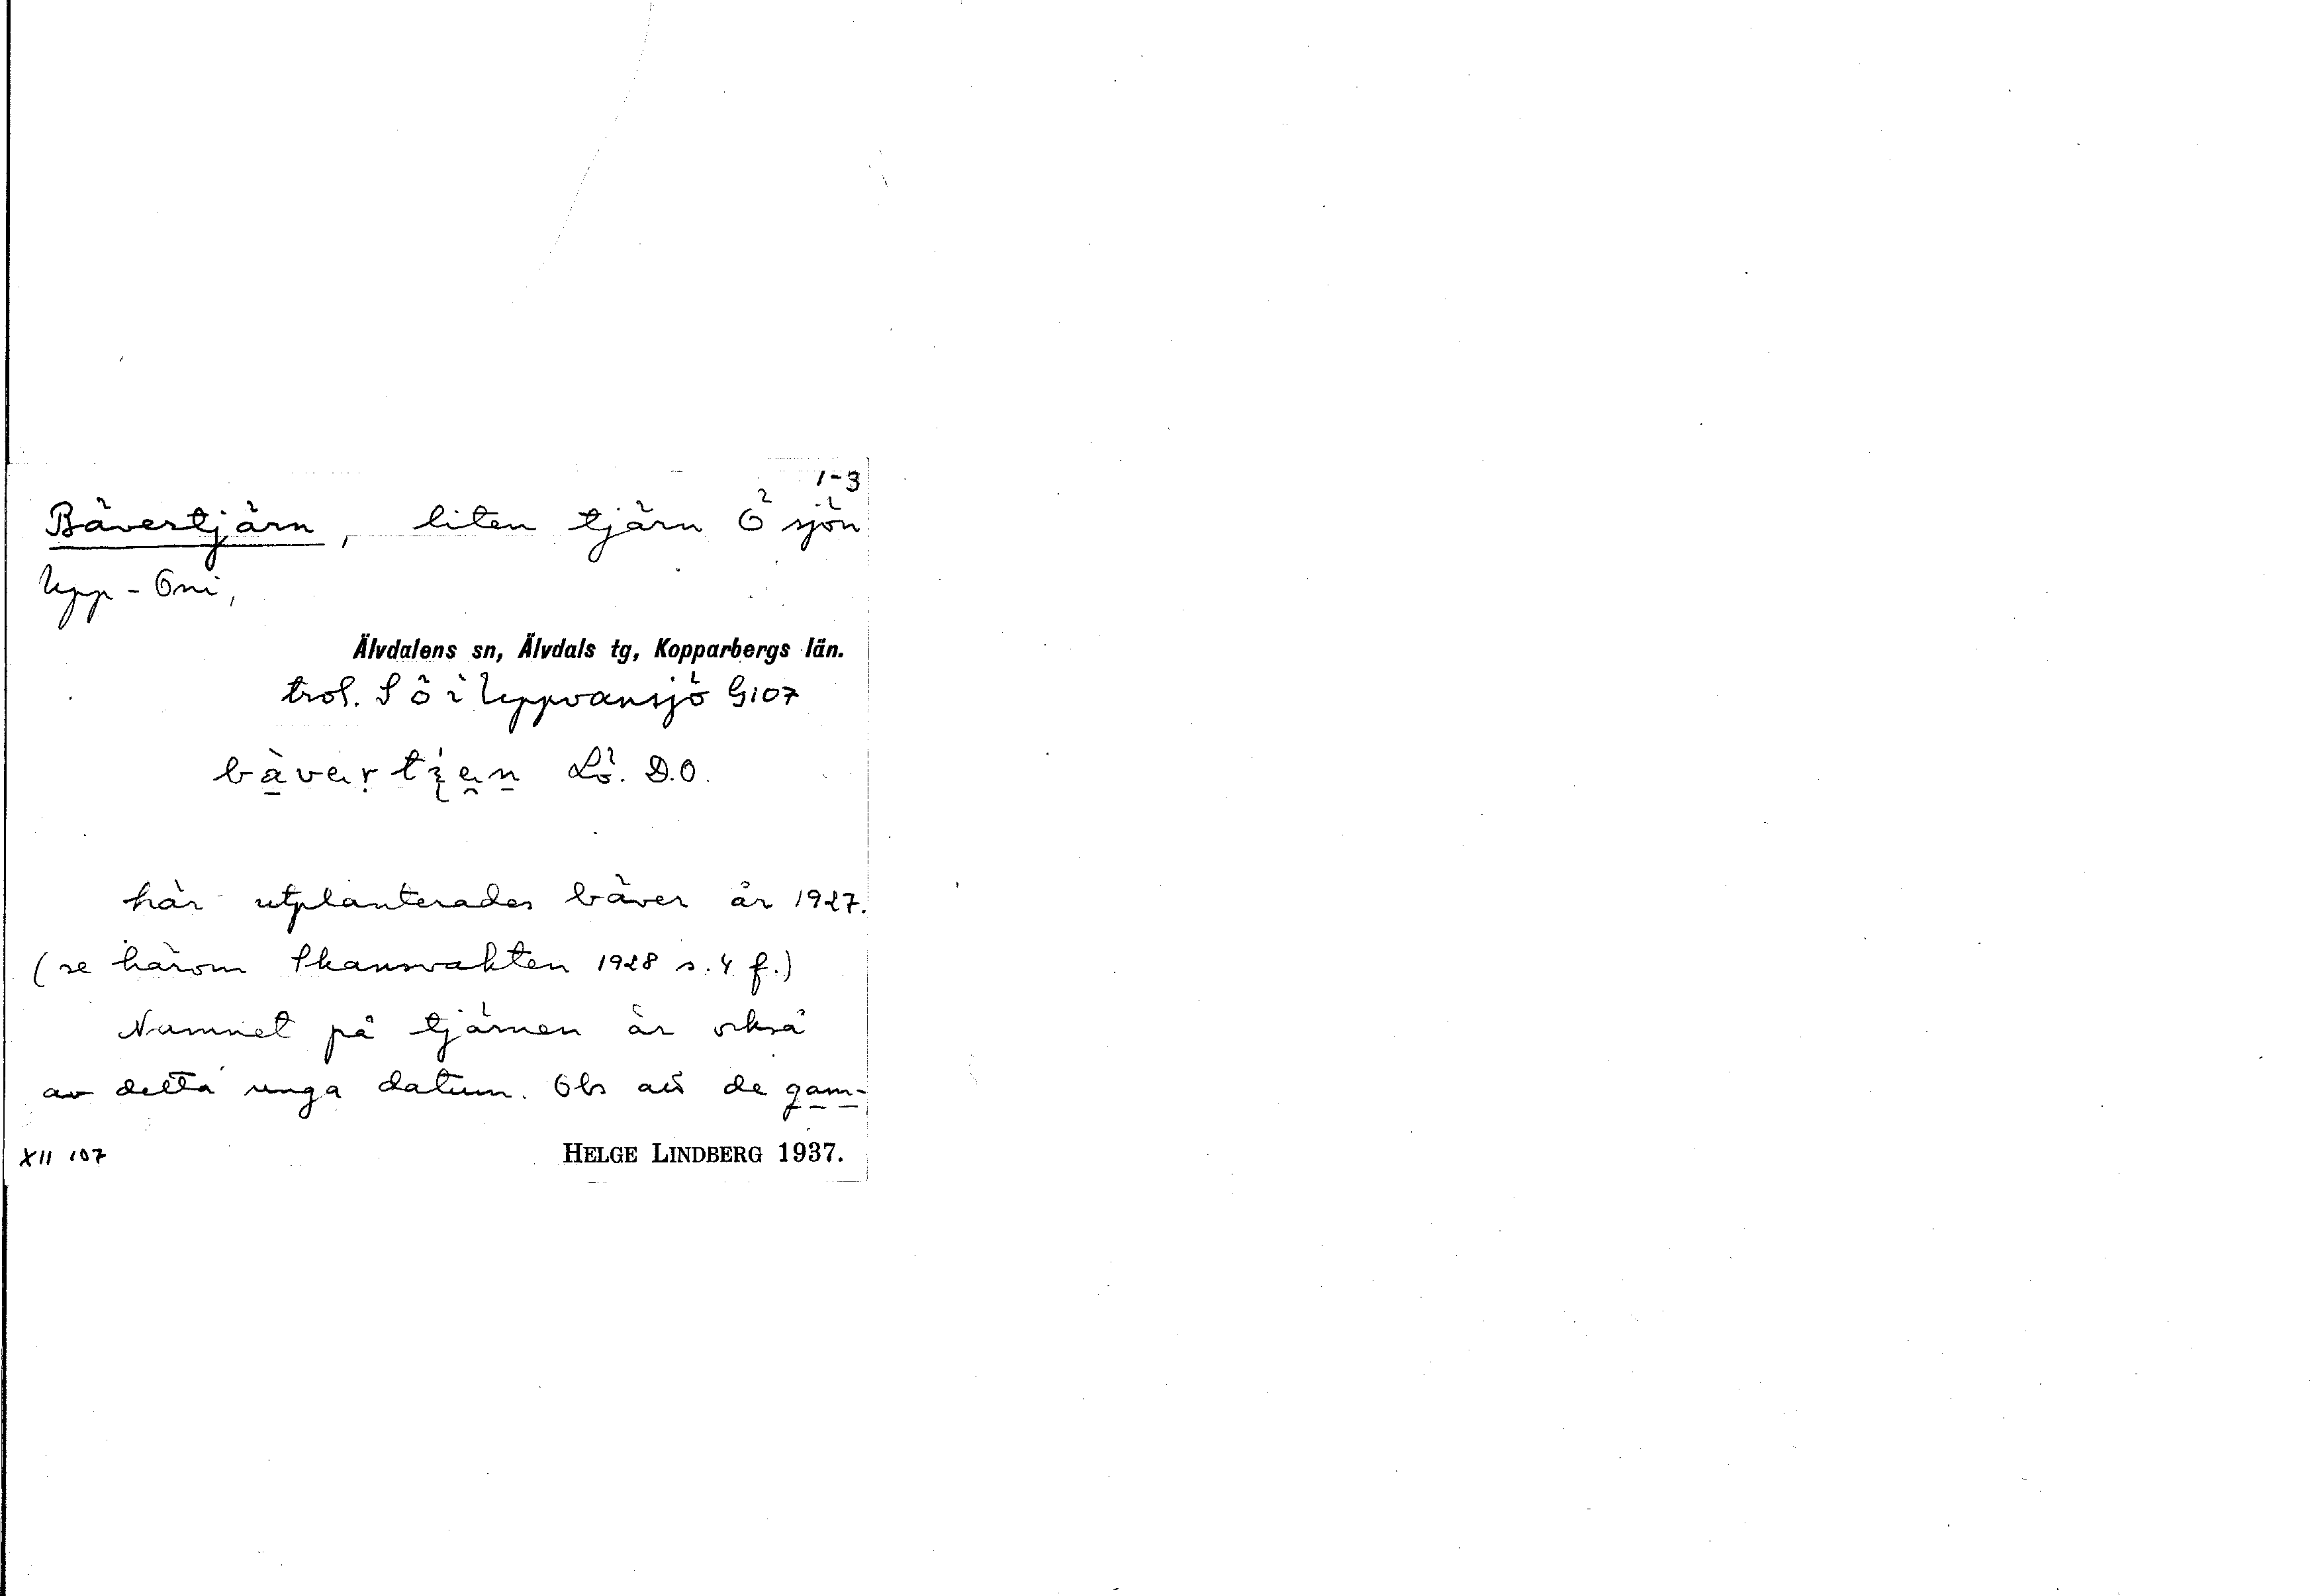 1-3
Bävertjärn, liten tjärn Ö sjön
Upp-Oni,
Älvdalens sn, Älvdals tg, Kopparbergs län.
trol. S ö i Uppvansjö G107
Lö. D.O.
här utplanterades bäver år 1927.
(se härom Skansvakten 1928 s. 4 f.)
Namnet på tjärnen är också
av detta unga datum. Obs att de gam-
XII 107
HELGE LINDBERG 1937.